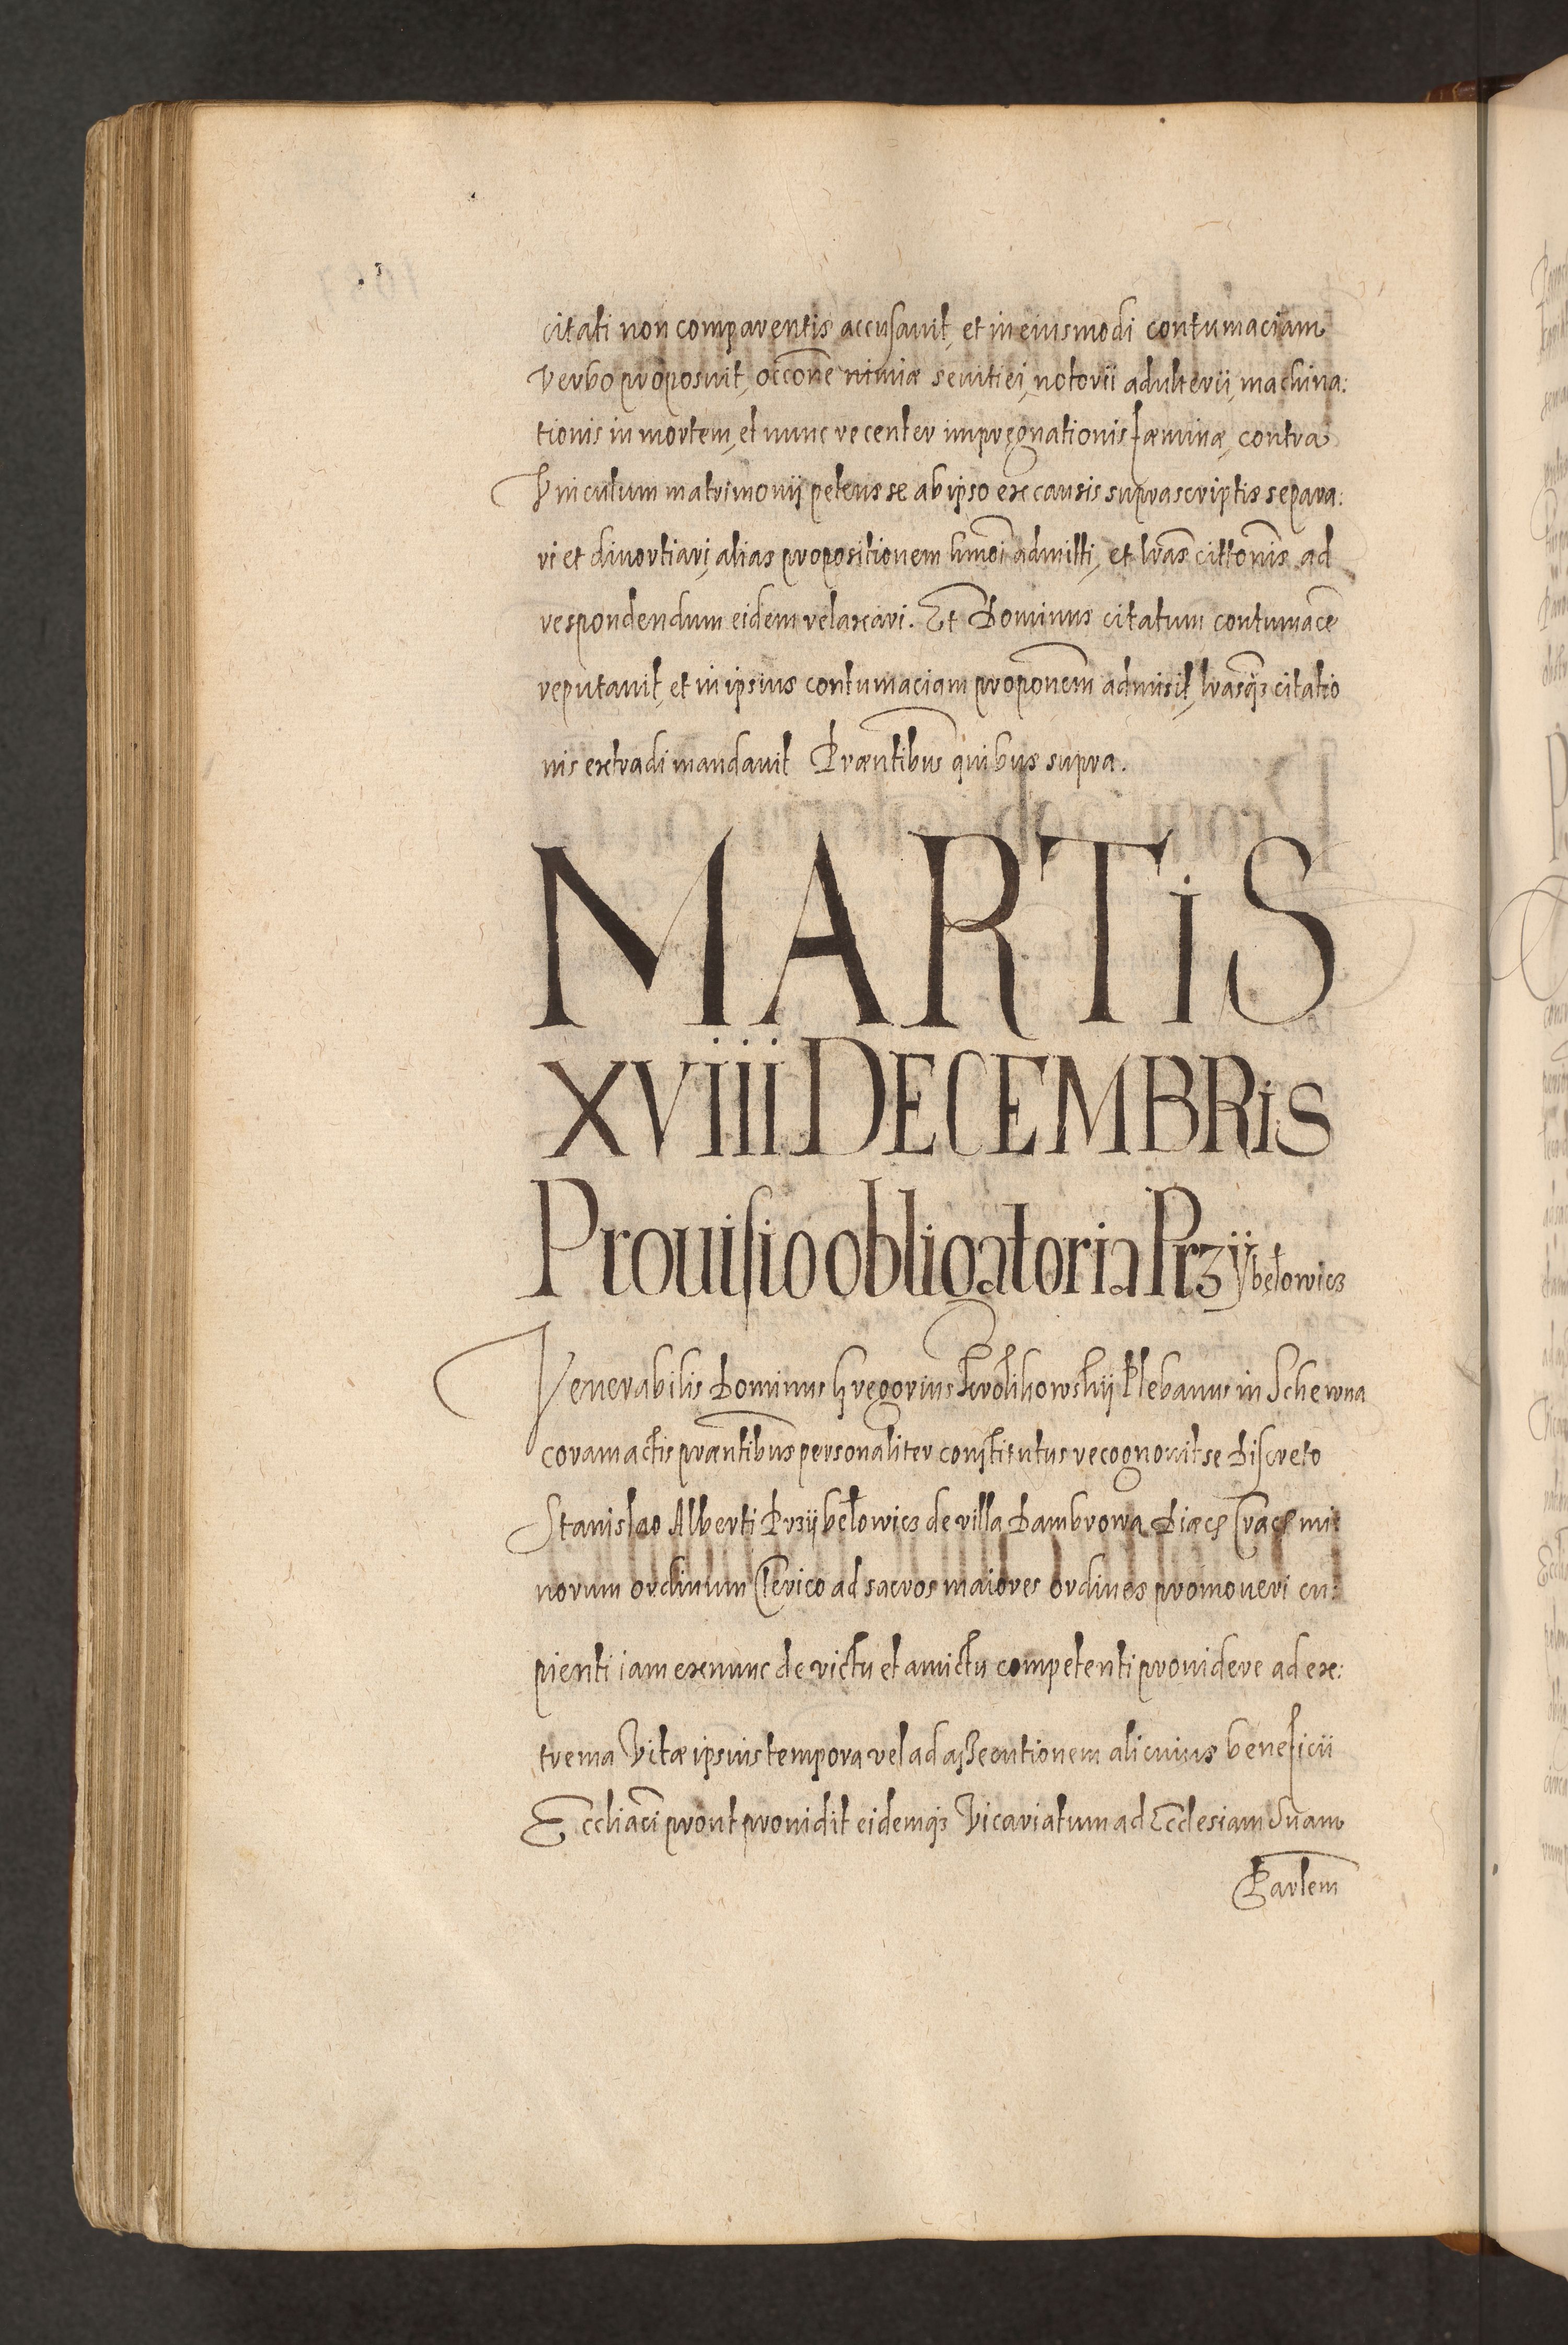 citati non comparentis accusauit, et in eiusmodi contumaciam
Verbo proposuit, occone nimiæ seuitiei, notorii adulterii, machina:
tionis in mortem, et nunc recenter impręgnationis fæminæ, contra
Vinculum matrimonÿ petens se ab ipso ex causis suprascriptis separa:
ri et diuortiari, alias propositionem hmoi admitti, et lras cittonis ad
respondendum eidem relaxari. Et Dominus citatum contumace
reputauit, et in ipsius contumaciam proponem admisit, lrasqꝫ citatio
nis extradi mandauit Præntibus quibus supra.
MARTiS
XViii DECEMBRiS
Prouisio obligatoria Przÿbełowicz
Venerabilis Dominus Gregorius Krolikowskÿ Plebanus in
coram actis præntibus personaliter constitutus recognouit se discreto
Stanislao Alberti Przÿbełowicz de villa Dambrowa Diæc Crac mi:
norum ordinum Clerico ad sacros maiores ordines promoueri cu:
pienti iam exnunc de victu et amictu competenti prouidere ad ex:
trema Vitæ ipsius tempora vel ad assecutionem alicuius beneficii
Eccliaci prout prouidit eidemqꝫ Vicariatum ad Ecclesiam suam
Parlem